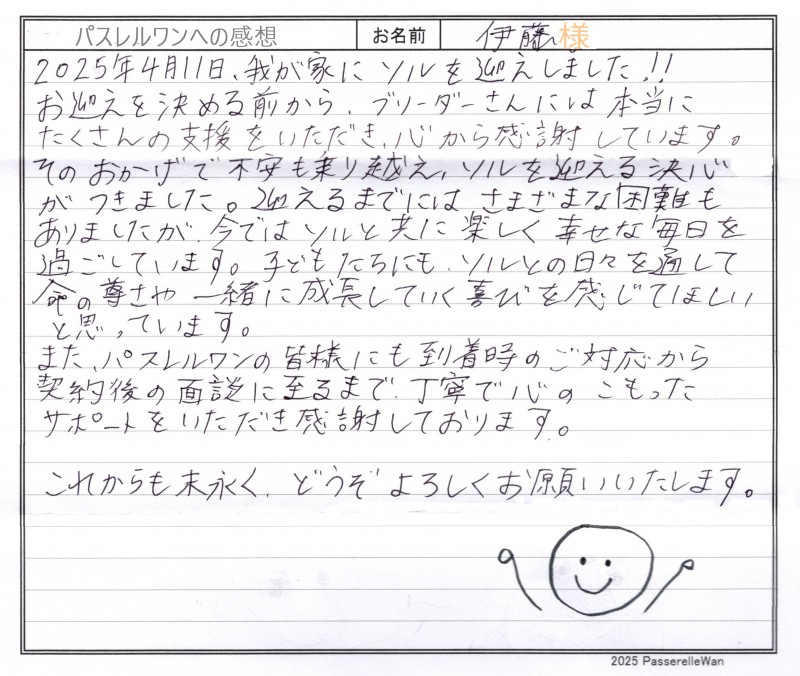 パスレルワンへの感想 お名前 伊藤様
2025年4月11日、我が家にソルを迎えしました!!
お迎えを決める前から、ブリーダーさんには本当に
たくさんの支援をいただき、心から感謝しています。
そのおかげで不安も乗り越え、ソルを迎える決心
がつきました。迎えるまでにはさまざまな困難も
ありましたが、今ではソルと共に楽しく幸せな毎日を
過ごしています。子どもたちにも、ソルとの日々を通して
命の尊さや一緒に成長していく喜びを感じてほしい
と思っています。
また、パスレルワンの皆様にも到着時のご対応から
契約後の面談に至るまで、丁寧で心のこもった
サポートをいただき感謝しております。
これからも末永く、どうぞよろしくお願いいたします。
2025 PasserelleWan